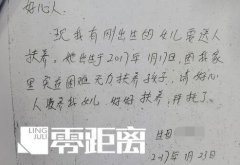 好心人:
现我有刚出生的女儿需送人
扶养。她出生于2017年1月17日,因我家
里实在困难无力扶养孩子,请好心
人收养我女儿,好好扶养,拜托了。
生母
2017年1月23日
LING
JULI
零距离